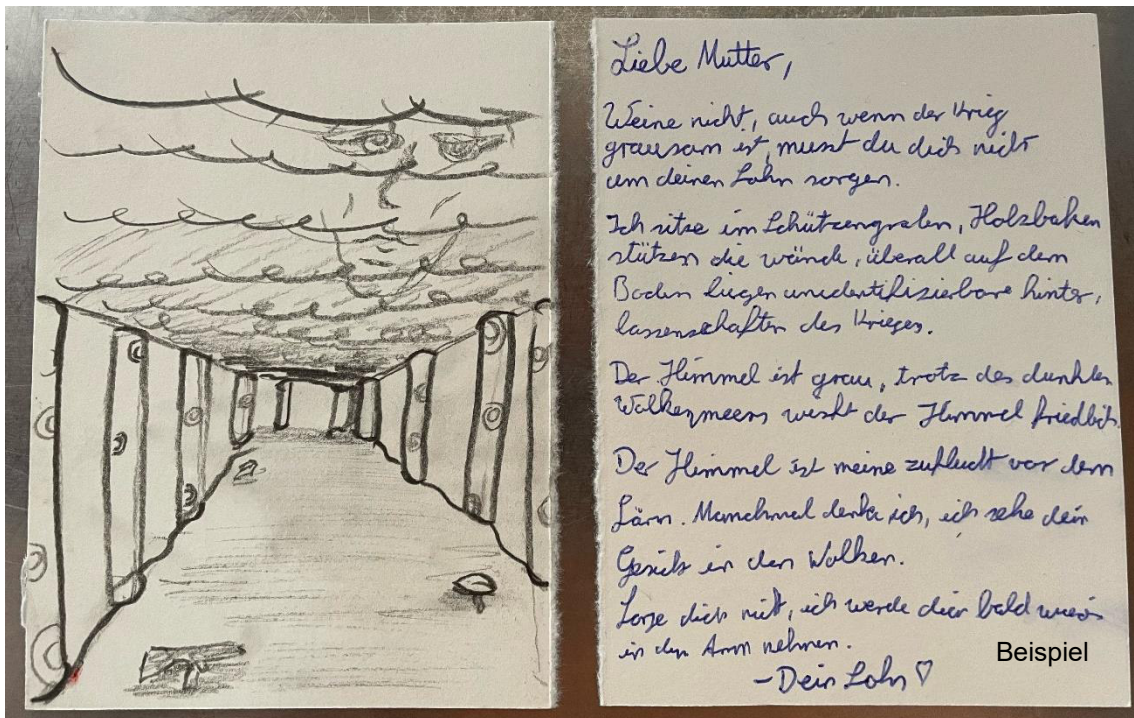 Liebe Mutter,
Weine nicht, auch wenn der Krieg
grausam ist, musst du dich nicht
um deinen Sohn sorgen.
Ich sitze im Schützengraben, Holzbalken
stützen die wände, überall auf dem
Boden liegen unidentifizierbare hinter,
lassenschaften des Krieges.
Der Himmel ist grau, trotz des dunklen
Wolkenmeers wirkt der Himmel friedlich.
Der Himmel ist meine zuflucht vor dem
Lärm. Manchmal denke ich, ich sehe dein
Gesicht in den Wolken.
Sorge dich nicht, ich werde dich bald
in den Arm nehmen.
Beispiel
- Dein Sohn ♡